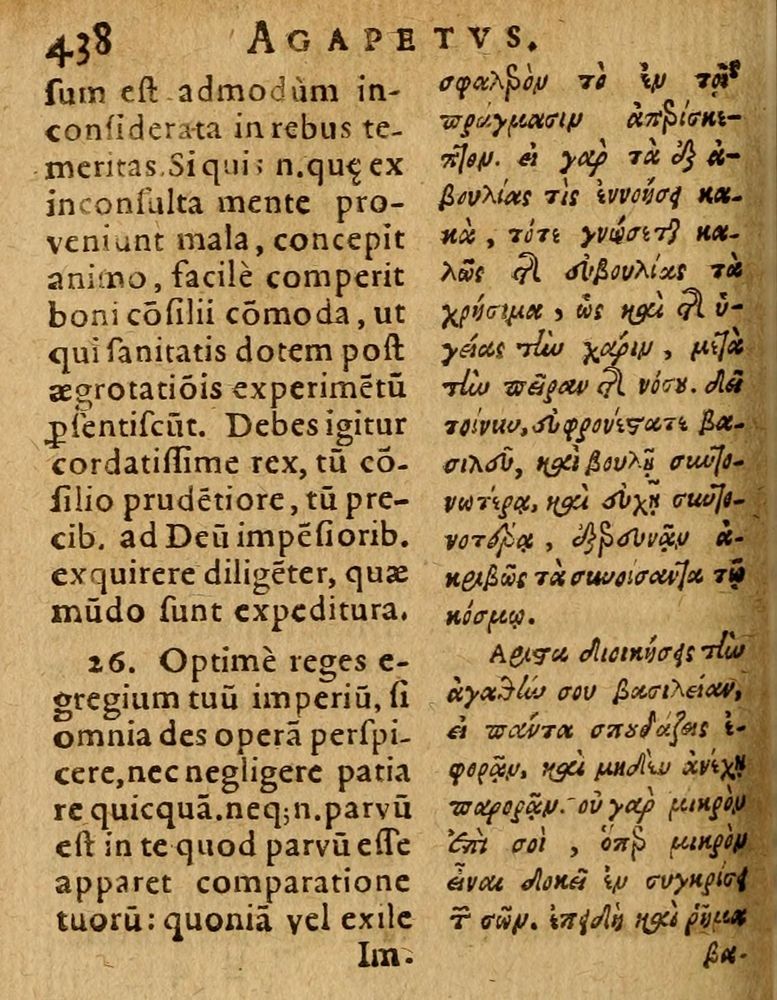 438 AGAPETVS.
ſum eſt admodùm in-
conſiderata in rebus te-
meritas. Si quis n. quę ex
inconſulta mente pro-
veniunt mala, concepit
animo, facilè comperit
boni cōſilii cōmoda, ut
qui ſanitatis dotem poſt
ægrotatiōis experimētū
ꝑſentiſcūt. Debes igitur
cordatiſſime rex, tū cō-
ſilio prudētiore, tū pre-
cib. ad Deū impēſiorib.
exquirere diligēter, quæ
mūdo ſunt expeditura.
26. Optimè reges e-
gregium tuū imperiū, ſi
omnia des operā perſpi-
cere, nec negligere patia
re quicquā. neq; n. parvū
eſt in te quod parvū eſſe
apparet comparatione
tuorū: quoniā vel exile
Im.
σφαλερὸν τὸ ἐν τοῖς
πράγμασιν ἀπερίσκε-
πτον. εἰ γὰρ τὰ ἐξ ἀ-
βουλίας τὶς ἐννοήσει κα-
κὰ, τότε γνώσεται κα-
λῶς τῆς εὐβουλίας τὰ
χρήσιμα, ὡς καὶ τῆς ὑ-
γείας τὴν χάριν, μετὰ
τὴν πεῖραν τῆς νόσου. δεῖ
τοίνυν, εὐφρονέστατε βα-
σιλεῦ, καὶ βουλῇ συντο-
νωτέρᾳ, καὶ εὐχῇ συντο-
νοτέρᾳ, ἐξερευνᾷν ἀ-
κριβῶς τὰ συνοίσαντα τῷ
κόσμῳ.
Αριστα διοικήσεις τὴν
ἀγαθὴν σου βασιλείαν,
εἰ πάντα σπουδάζεις ἐ-
φορᾷν, καὶ μηδὲν ἀνέχῃ
παρορᾷν. οὐ γὰρ μικρὸν
ἐπὶ σοὶ, ὅπερ μικρὸν
εἶναι δοκεῖ ἐν συγκρίσει
τῶν σῶν. ἐπειδὴ καὶ ῥῆμα
βα-